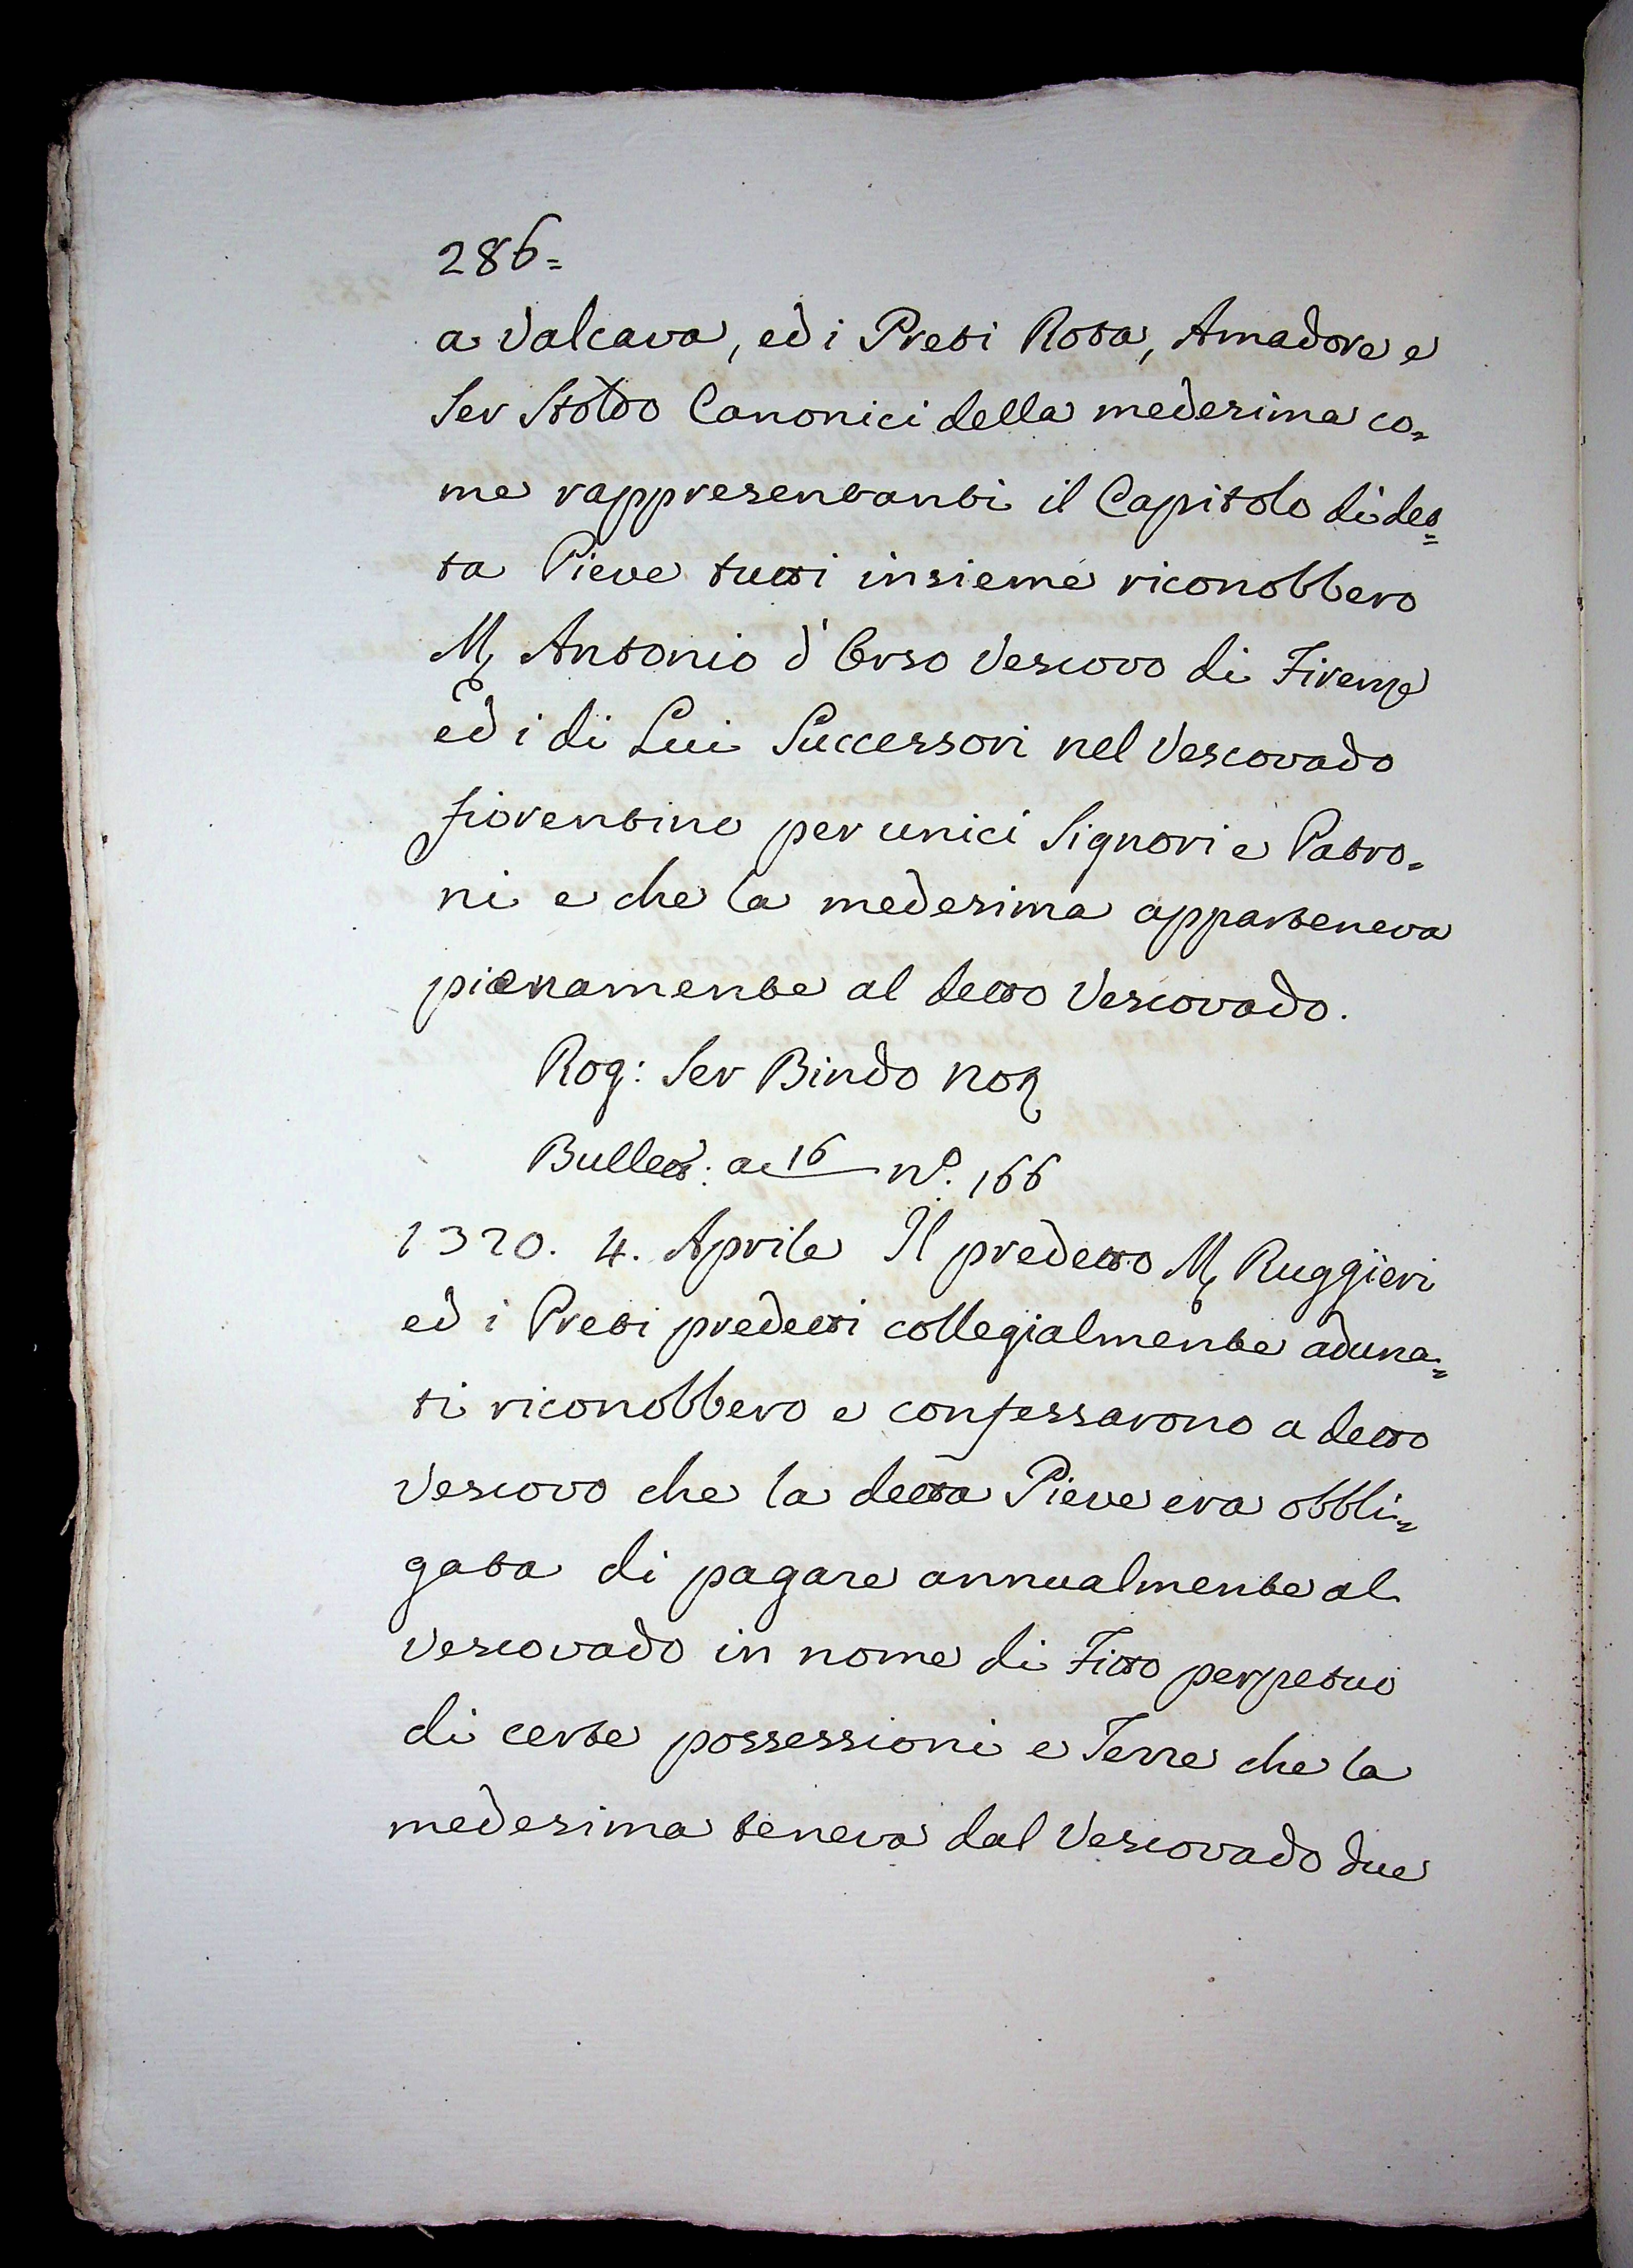 286=
a Valcava, ed i Preti Rota, Amadore e
Ser Stoldo Canonici della medesima co=
me rappresentanti il Capitolo di det=
ta Pieve tutti insieme riconobbero
M. Antonio d'Orso Vescovo di Firenze
ed i di Lui Successori nel Vescovado
fiorentino per unici Signori e Patro=
ni e che la medesima apparteneva
pienamente al detto Vescovado.
Rog: Ser Bindo not
Bullett: a 16 n.º 166
1320. 4. Aprile Il predetto M. Ruggieri
ed i Preti predetti collegialmente aduna=
ti riconobbero e confessarono a detto
Vescovo che la detta Pieve era obbli=
gata di pagare annualmente al
Vescovado in nome di Fitto perpetuo
di certe possessioni e Terre che la
medesima teneva dal Vescovado due